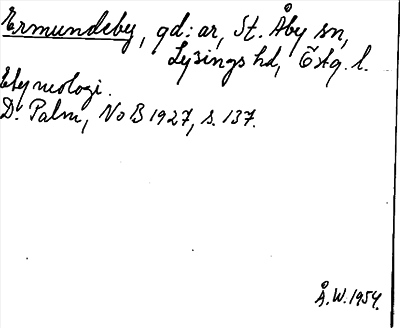 Ermundeby, gd:ar, St. Åby sn,
Lysings hd, Östg. l.
Etymologi.
D. Palm, NoB 1927, s. 137.
Å.W. 1954.